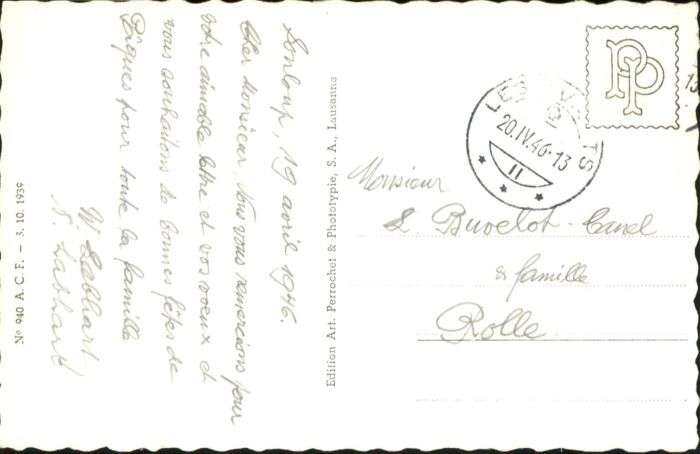 Sonloup, 19 avril 1946.
Cher Monsieur, Nous vous remercions pour
votre aimable lettre et vos voeux et
vous souhaitons de bonnes fêtes de
Pâques pour toute la famille
W Labhart
N. Labhart
Nº 940 A. C. F. – 3. 10. 1939
Edition Art. Perrochet & Phototypie, S. A., Lausanne
PP
LES AVANTS
20.IV.46-13
II
13
Monsieur
L Buvelot-Canel
& famille
Rolle